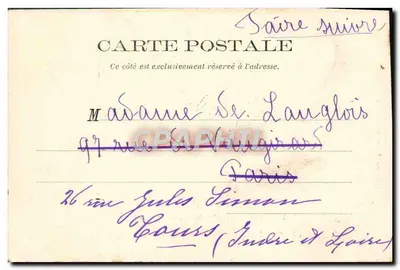 Faire suivre
CARTE POSTALE
Ce côté est exclusivement réservé à l'adresse.
Madame de Langlois
97 rue de Vaugirard
Paris
26 rue Jules Simon
Tours (Indre et Loire)